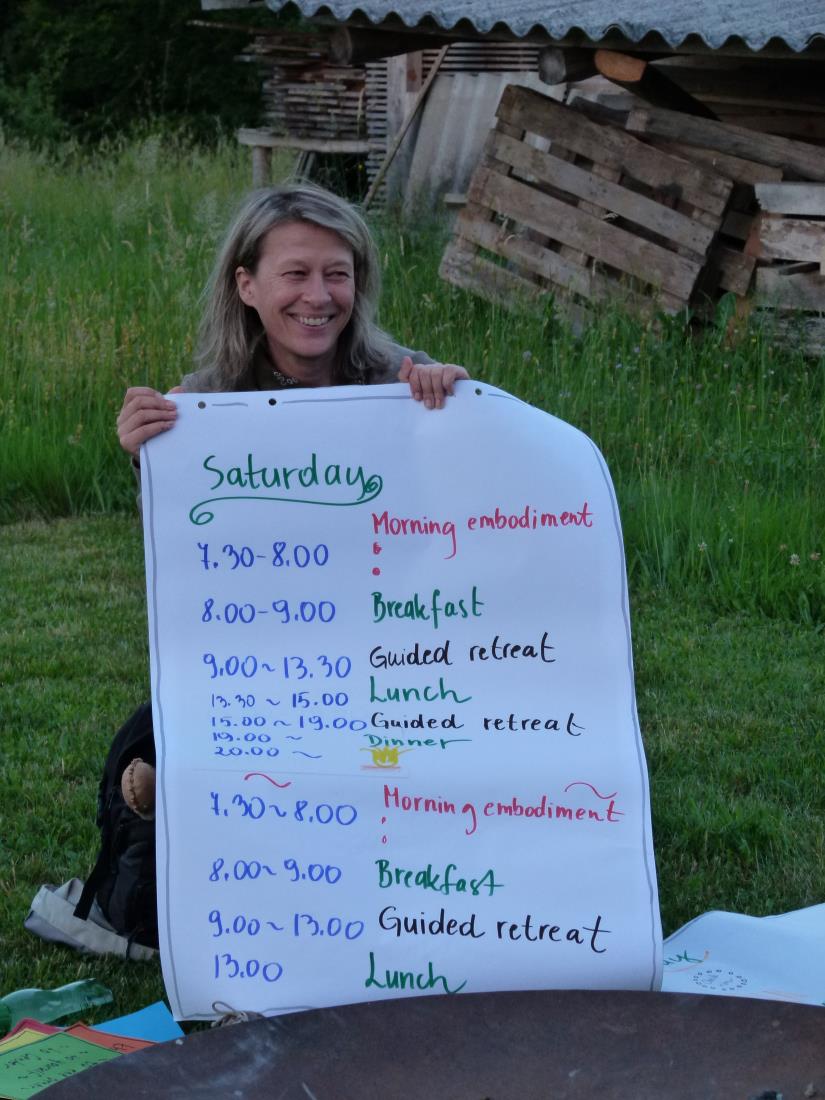 Saturday
7.30-8.00 Morning embodiment
8.00-9.00 Breakfast
9.00~13.30 Guided retreat
13.30 ~ 15.00 Lunch
15.00 ~ 19.00 Guided retreat
19.00 ~ Dinner
20.00 ~
7.30~8.00 Morning embodiment
8.00~9.00 Breakfast
9.00~13.00 Guided retreat
13.00 Lunch